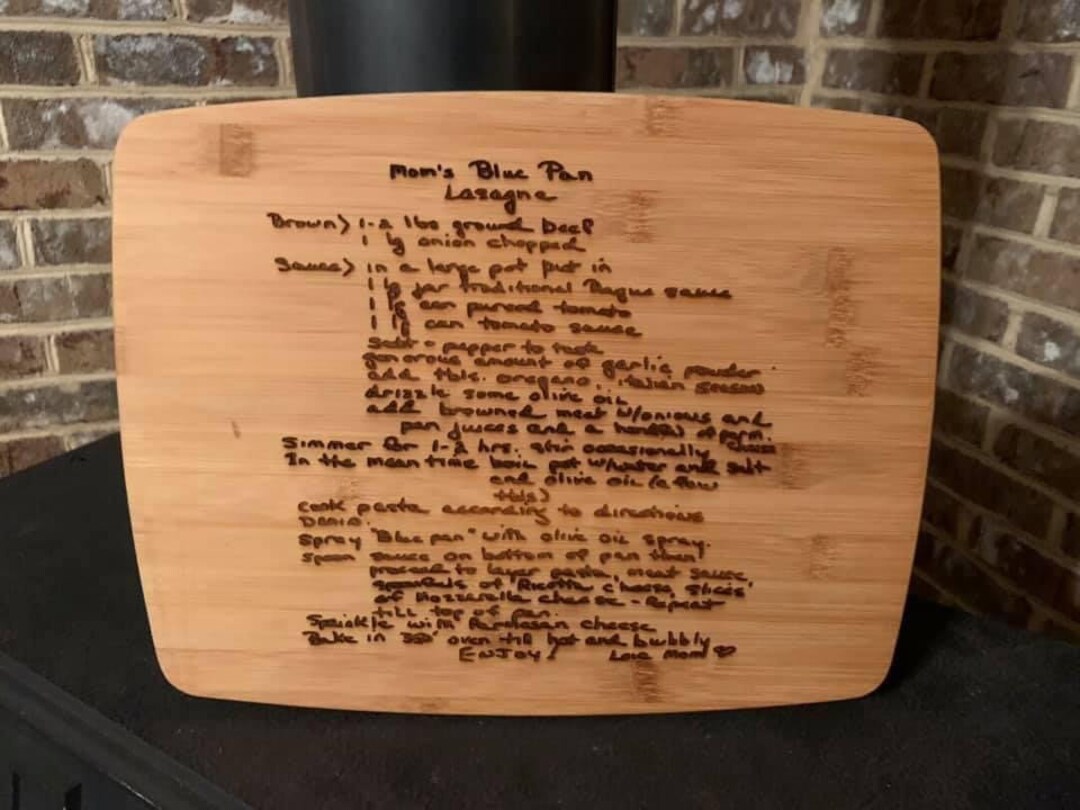 Mom's Blue Pan
Lasagne
Brown> 1-2 lbs ground beef
1 lg onion chopped
Sauce> in a large pot put in
1 lg jar Traditional Ragu sauce
1 lg can pureed tomato
1 lg can tomato sauce
Salt - pepper to taste
generous amount of garlic powder
add tbls. oregano, italian season
drizzle some olive oil
add browned meat w/onions and
pan juices and a handful of parm. cheese
Simmer for 1-2 hrs. stir occasionally
In the mean time boil pot w/water and salt
and olive oil (a few
tbls)
cook pasta according to directions
Drain.
Spray "Blue pan" with olive oil spray.
Spoon sauce on bottom of pan then
proceed to layer pasta, meat sauce,
spoonfuls of Ricotta cheese, slices
of Mozzarella cheese - Repeat
till top of pan.
Sprinkle with Parmesan cheese
Bake in 350° oven till hot and bubbly
ENJOY! Love Mom ♡